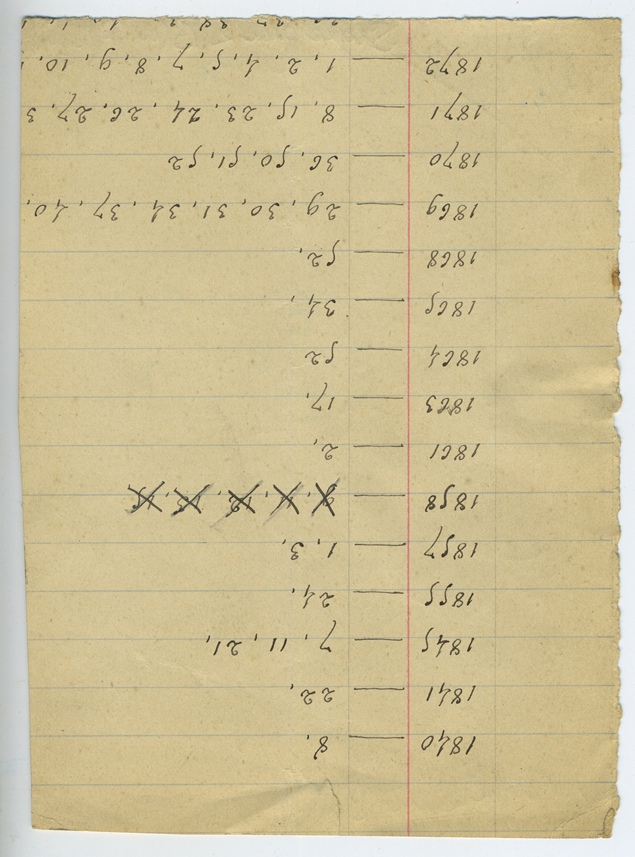 1840 — 8,
1841 — 22,
1845 — 7, 11, 21,
1855 — 24,
1857 — 1, 3,
1858 —
1861 — 2,
1863 — 17,
1864 — 52
1865 — 34,
1868 — 52,
1869 — 29, 30, 31, 34, 37, 40,
1870 — 36, 50, 51, 52
1871 — 8, 15, 23, 24, 26, 27, 3
1872 — 1, 2, 4, 5, 7, 8, 9, 10,